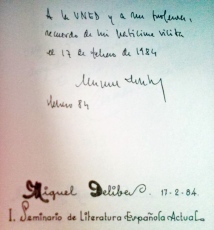 A la UNED y a mi profesora,
recuerdo de mi gratísima visita
el 17 de febrero de 1984
febrero 84
Miguel Delibes. 17-2-84.
I. Seminario de Literatura Española Actual.